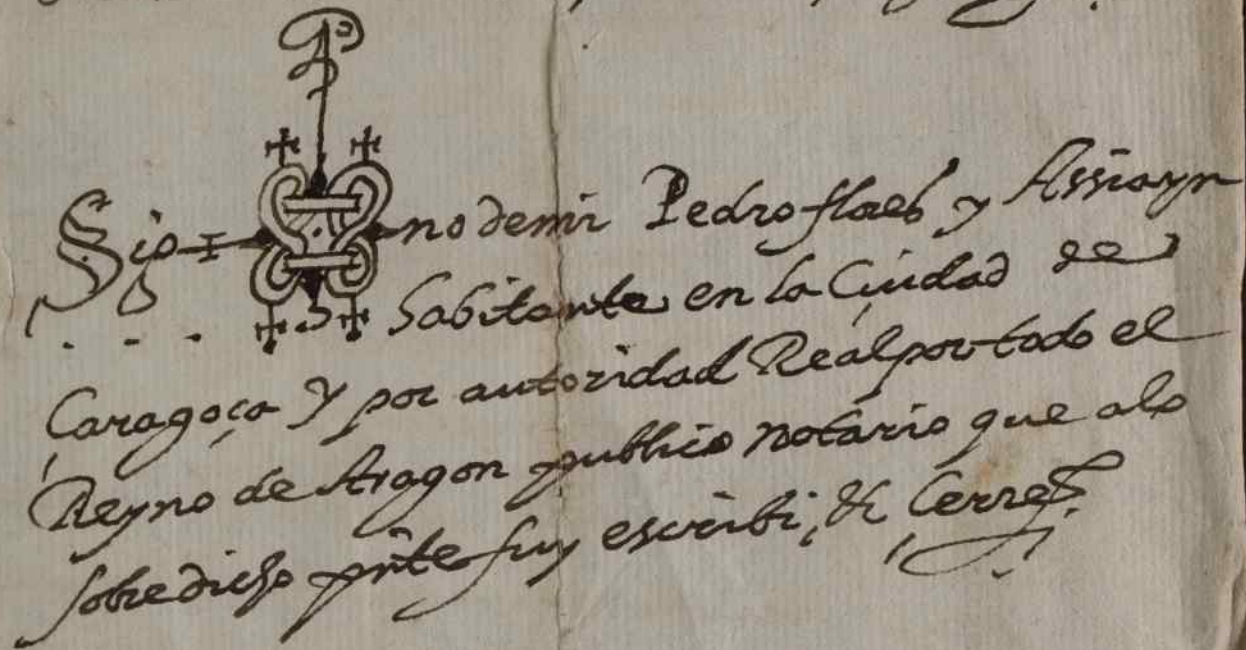 Sig no de mi Pedro flaes y Assiayn
habitante en la Ciudad de
Çaragoça y por autoridad Real por todo el
Reyno de Aragon publico notario que alo
sobredicho pnte fuy escribi, et Cerre